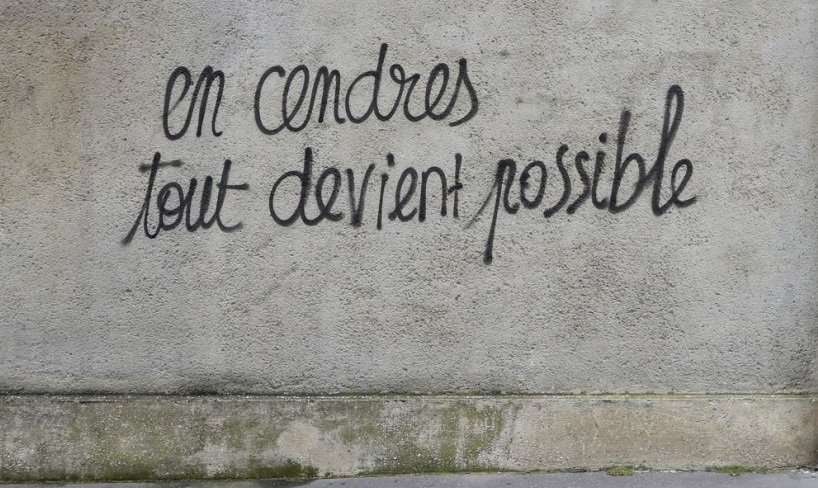 en cendres
tout devient possible